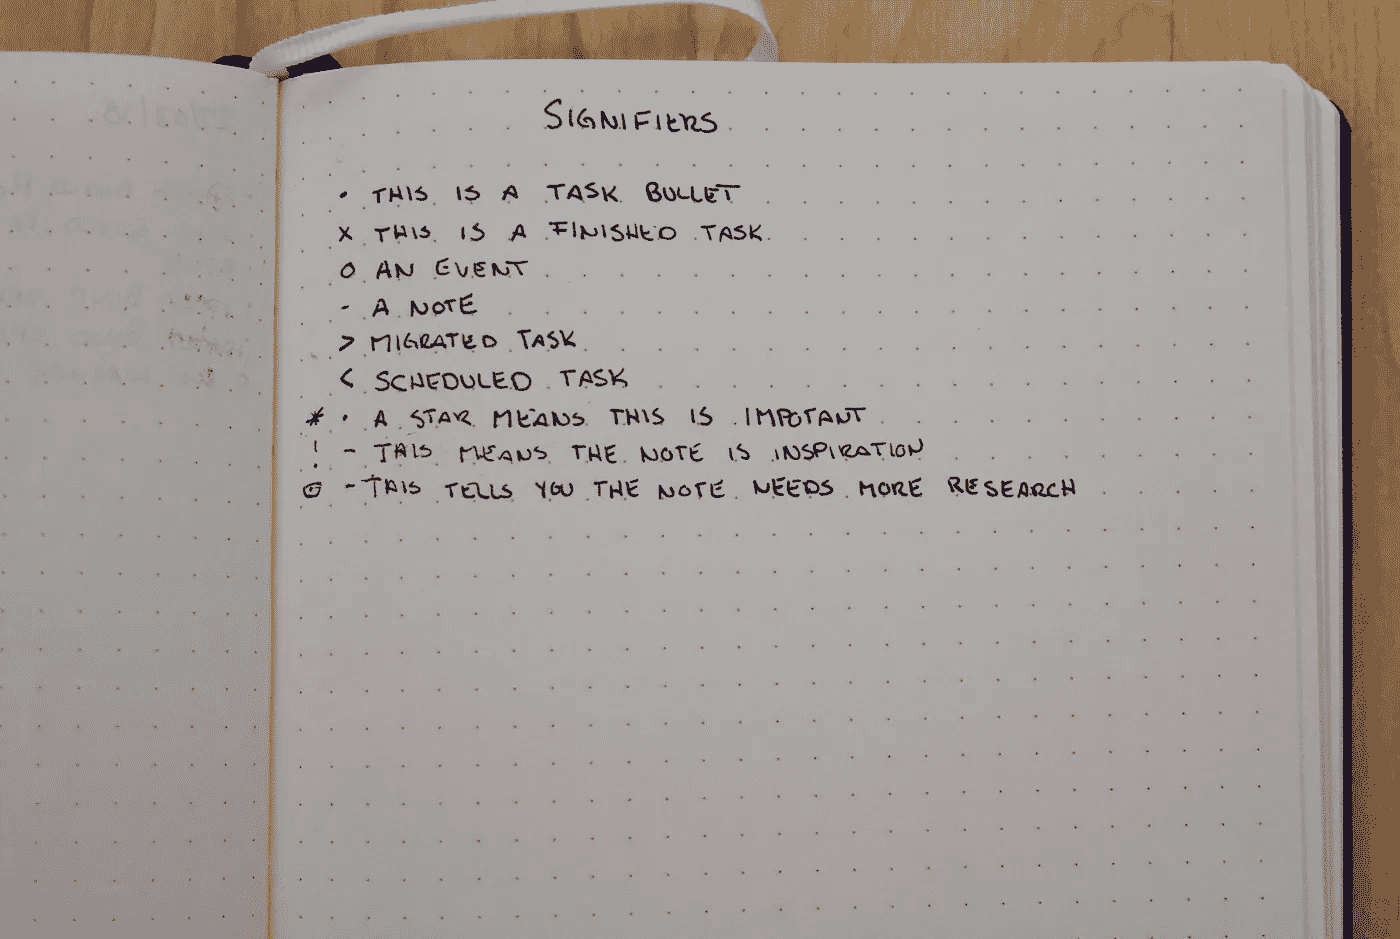 SIGNIFIERS
• THIS IS A TASK BULLET
X THIS IS A FINISHED TASK
O AN EVENT
- A NOTE
> MIGRATED TASK
< SCHEDULED TASK
* • A STAR MEANS THIS IS IMPOTANT
! - THIS MEANS THE NOTE IS INSPIRATION
⊙ - THIS TELLS YOU THE NOTE NEEDS MORE RESEARCH